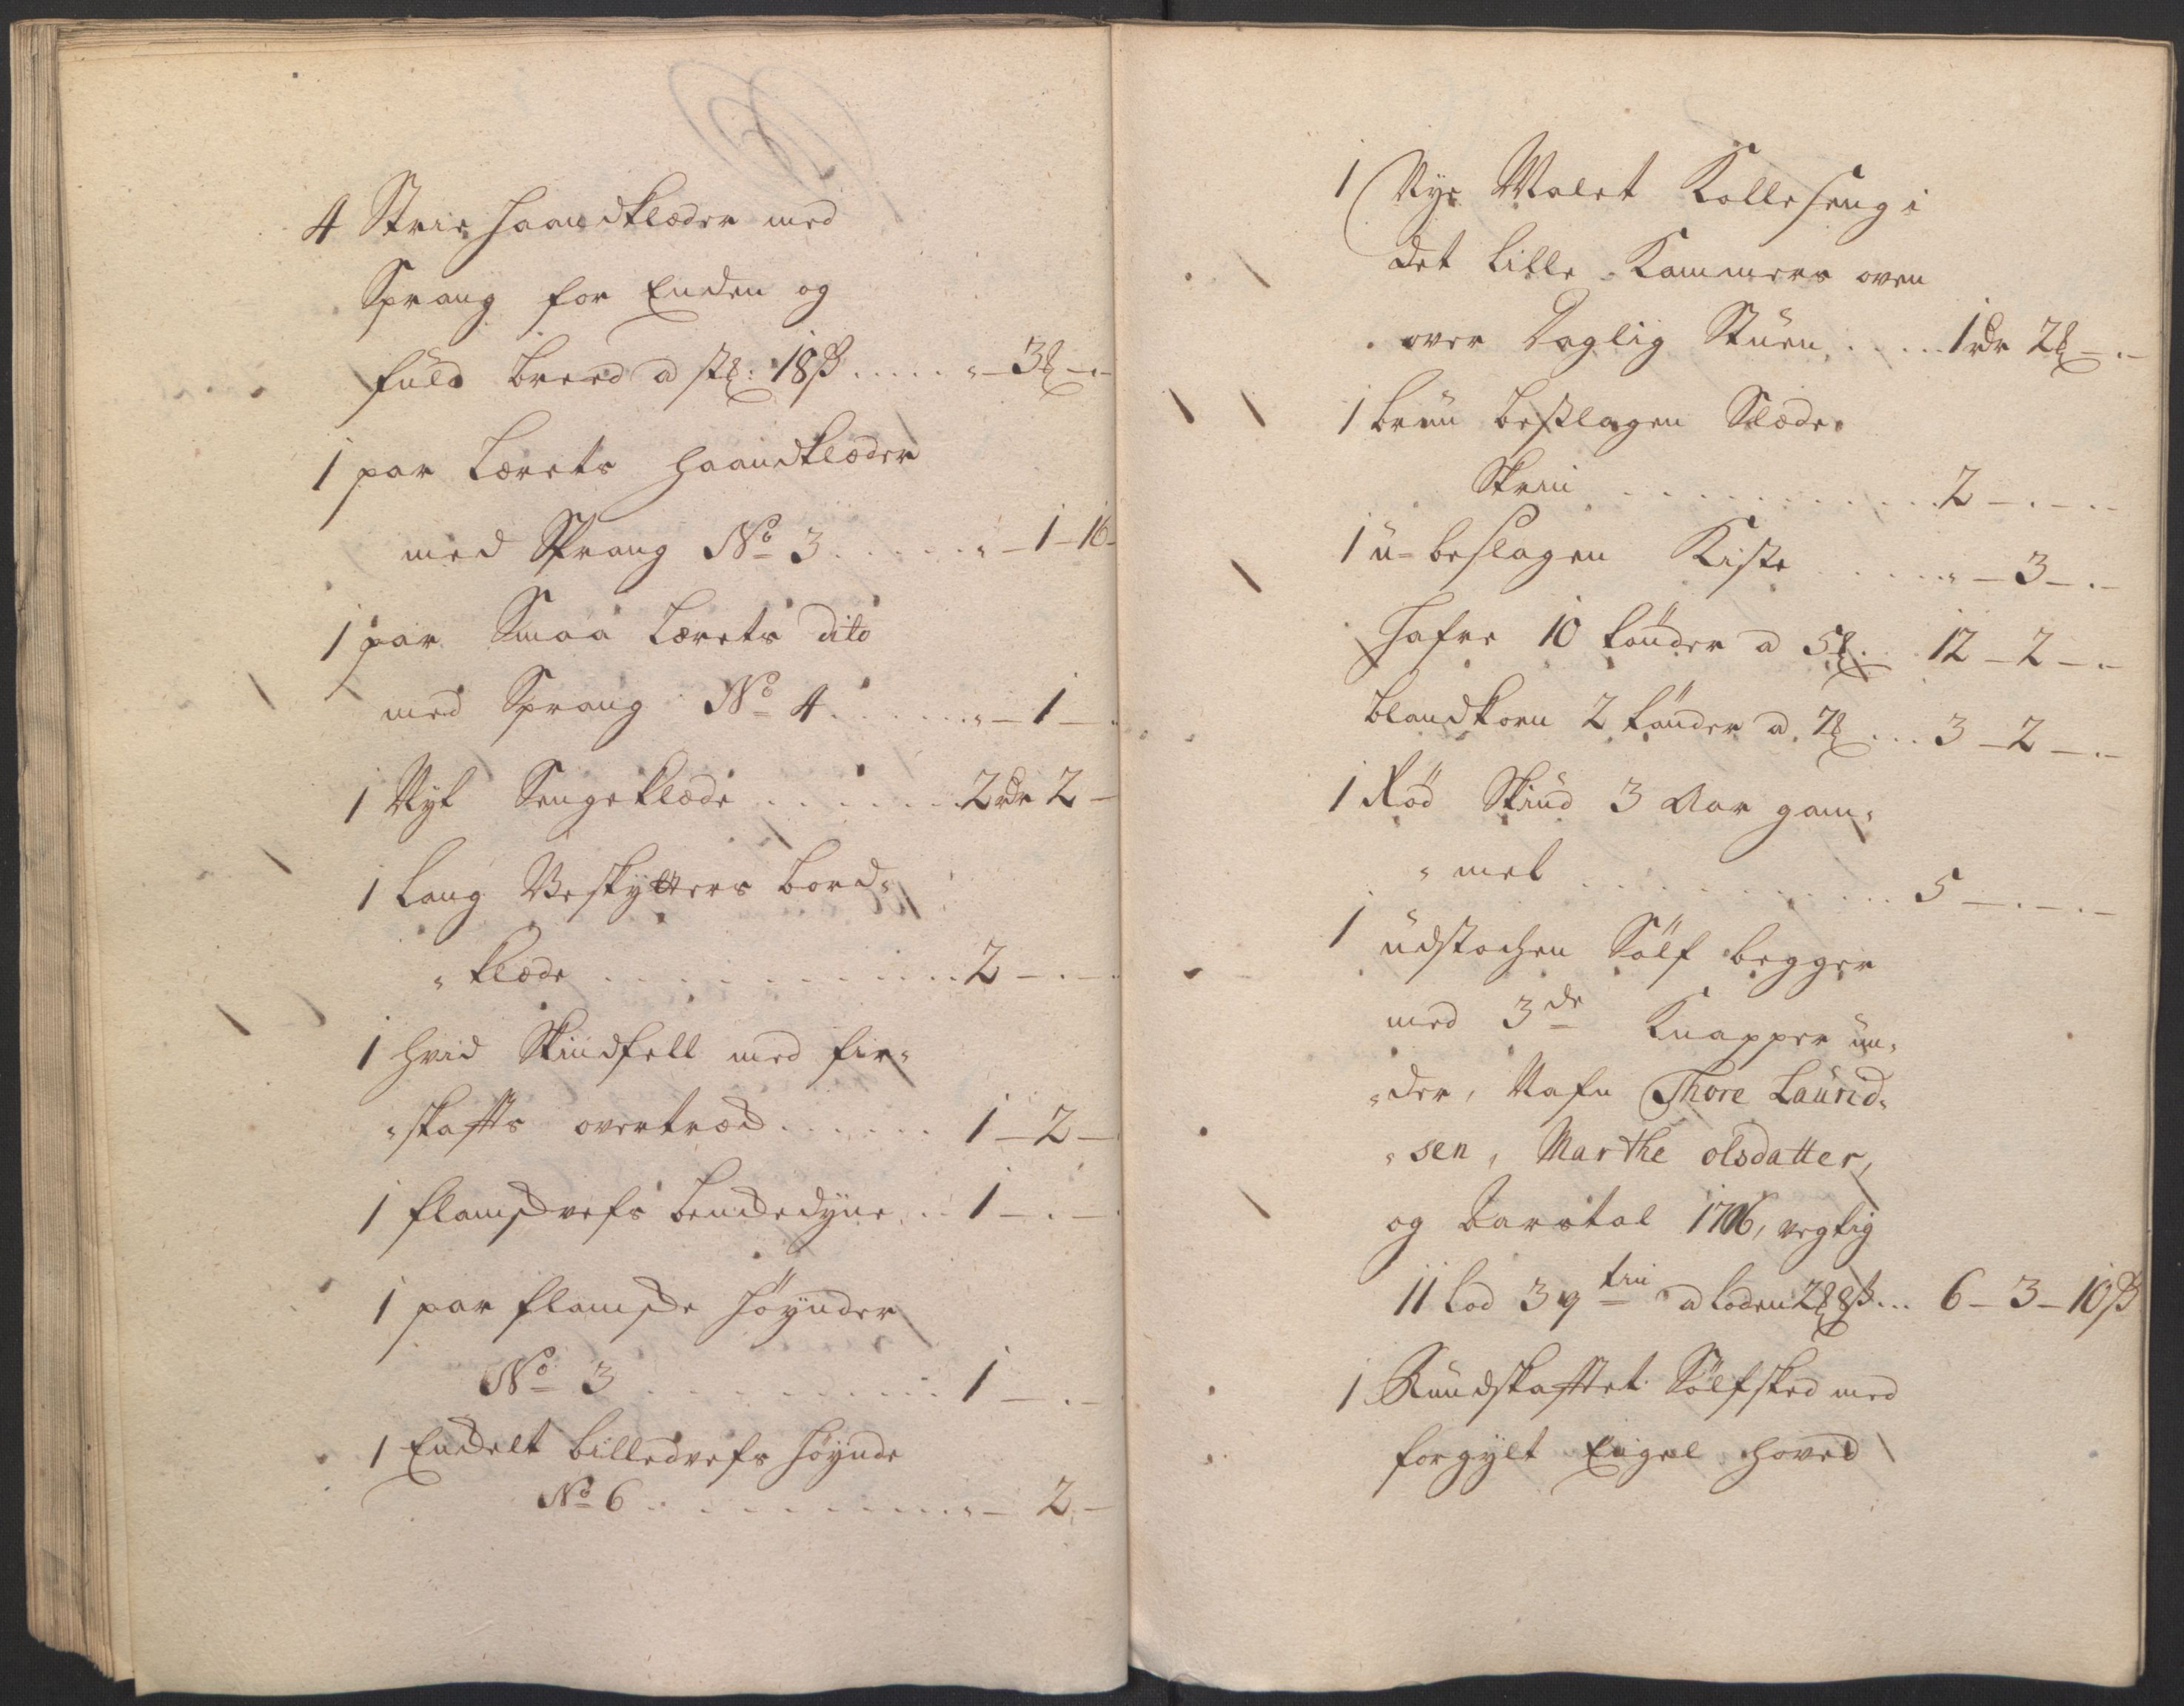 4 Strie Haandklæder med
Sprang for Enden og
fuld breed a st: 18 ß ..... " - 3 - . -
1 par Lærets Haandklæder
med Sprang No 3 ...... " - 1 - 16 -
1 par Smaa Lærets dito
med Sprang No 4 ....... " - 1 - .
1 Nyt Sengeklæde ....... 2 rdr 2 -
1 Lang Beskytters bord-
"klæde ............ 2 - . -
1 hvid Skindfell med fir-
"skaffts overtræd ...... 1 - 2 -
1 flamskvefs bendedyne .. 1 - . - .
1 par flamske Høynder
No 3 .......... 1 - . -
1 Enkelt billedvefs høynde
No 6 ........... " - 2 -
1 Nye Malet Kollseng i
det lille Kammers oven
over Daglig Stuen ..... 1 rdr 2 - . -
1 brun beslagen Slæde
Skrin ............ 2 - . - . -
1 u-beslagen Kiste ...... " - 3 - . -
Hafre 10 tönder a 5 . 12 - 2 - . -
blandkorn 2 tönder a 7 ... 3 - 2 - . -
1 Röd Skind 3 Aar gam-
"mel ............ 5 - . - . -
1 udstochen Sölf begger
med 3de Knapper un-
"der, Nafn Thore Laurid-
"sen, Marthe olsdatter,
og Darstal 1706, vegtig
11 Lod 3 qtin a Loden 2 8 ß ... 6 - 3 - 10 ß
1 Rundskafftet Sölfsked med
forgylt Engel hoved